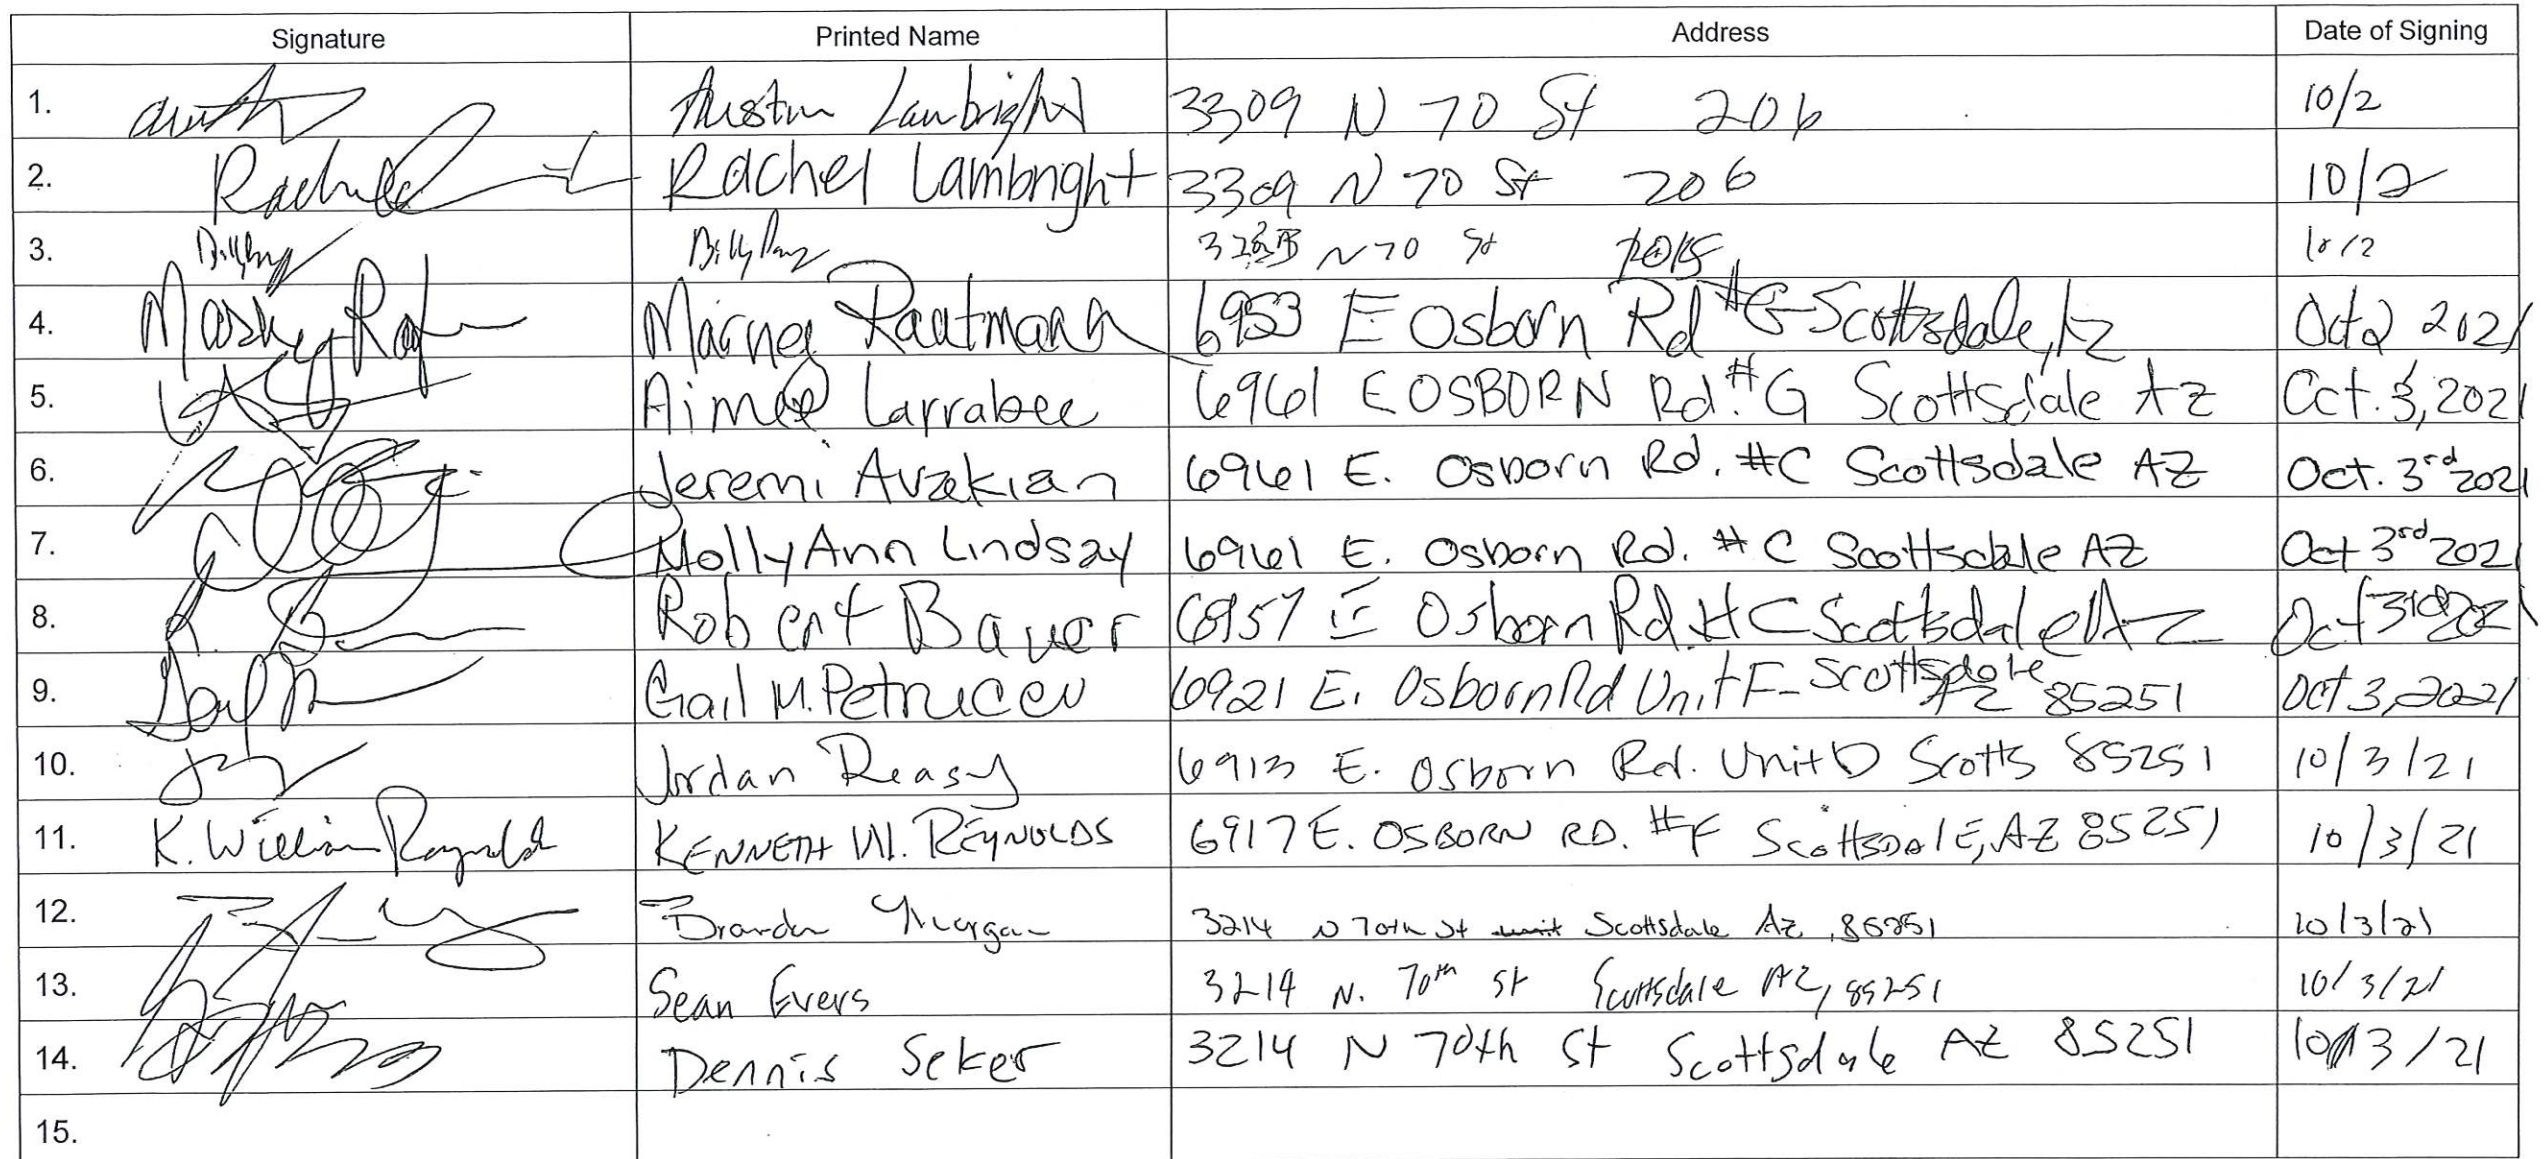 Signature Printed Name Address Date of Signing
1. Austin Lambright 3309 N 70 St 206 10/2
2. Rachel Lambright 3309 N 70 St 206 10/2
3. Billy N 70 St 10/2
4. E Osborn Rd #G Scottsdale, Az Oct 2 2021
5. Aimee Larrabee 6961 E OSBORN Rd. #G Scottsdale AZ Oct. 3, 2021
6. Jeremi Avzekian 6961 E. Osborn Rd. #C Scottsdale AZ Oct. 3rd 2021
7. MollyAnn Lindsay 6961 E. Osborn Rd. #C Scottsdale AZ Oct 3rd 2021
8. R. Robert Bauer 6957 E Osborn Rd #C Scottsdale AZ Oct 3rd
9. Gail M. 6921 E. Osborn Rd Unit F- Scottsdale AZ 85251 Oct 3, 2021
10. Jordan Reasy 6913 E. Osborn Rd. Unit D Scotts 85251 10/3/21
11. K. William Reynolds KENNETH W. REYNOLDS 6917 E. OSBORN RD. #F ScottsDalE, AZ 85251 10/3/21
12. Morgan 3214 N 70th St Scottsdale Az, 85251 10/3/21
13. Sean Evers 3214 N. 70th St Scottsdale AZ, 85251 10/3/21
14. Dennis Seker 3214 N 70th St Scottsdale AZ 85251 10/3/21
15.